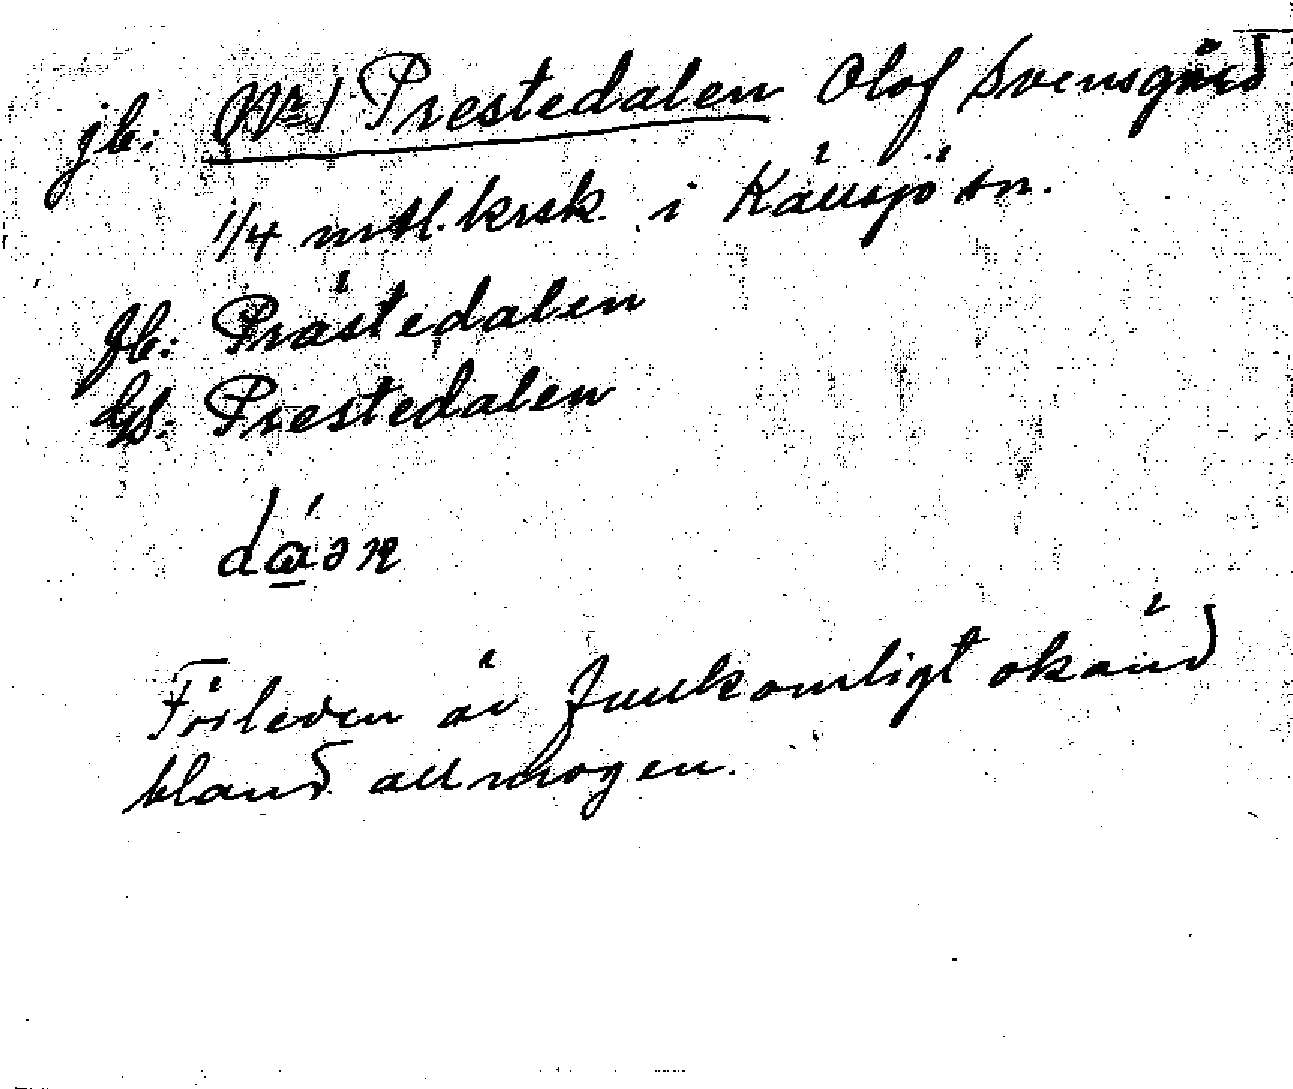 jb: (Nr 1 Prestedalen Olof Svensgård
1/4 mtl. krsk. i Källsjö sn.
Jb: Prästedalen
Gs: Prestedalen
dáən
Förleden är fullkomligt okänd
bland allmogen.